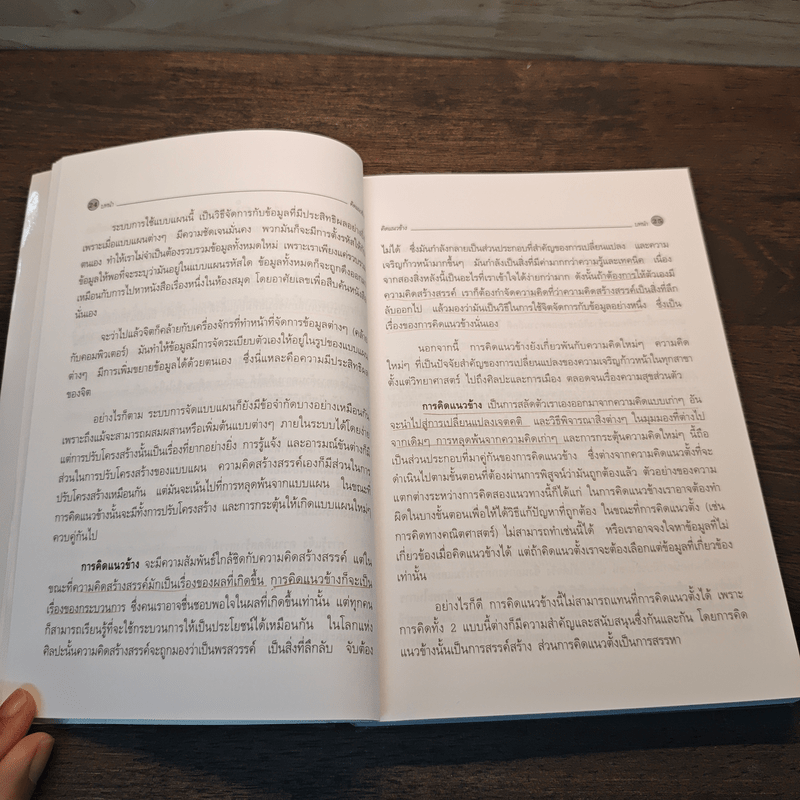 24 บทนำ
ระบบการใช้แบบแผนนี้ เป็นวิธีจัดการกับข้อมูลที่มีประสิทธิผลอย่างยิ่ง
เพราะเมื่อแบบแผนต่างๆ มีความชัดเจนมั่นคง พวกมันก็จะมีการตั้งรหัสให้กับ
ตนเอง ทำให้เราไม่จำเป็นต้องรวบรวมข้อมูลทั้งหมดใหม่ เพราะเราเพียงแค่รวบรวม
ข้อมูลให้พอที่จะระบุว่ามันอยู่ในแบบแผนรหัสใด ข้อมูลทั้งหมดก็จะถูกดึงออกมา
เหมือนกับการไปหาหนังสือเรื่องหนึ่งในห้องสมุด โดยอาศัยเลขเพื่อสืบค้นหนังสือ
นั่นเอง
จะว่าไปแล้วจิตก็คล้ายกับเครื่องจักรที่ทำหน้าที่จัดการข้อมูลต่างๆ (คล้าย
กับคอมพิวเตอร์) มันทำให้ข้อมูลมีการจัดระเบียบตัวเองให้อยู่ในรูปของแบบแผน
ต่างๆ มีการเพิ่มขยายข้อมูลได้ด้วยตนเอง ซึ่งนี่แหละคือความมีประสิทธิผล
ของจิต
อย่างไรก็ตาม ระบบการจัดแบบแผนก็ยังมีข้อจำกัดบางอย่างเหมือนกัน
เพราะถึงแม้จะสามารถผสมผสานหรือเพิ่มต้นแบบต่างๆ ภายในระบบได้โดยง่าย
แต่การปรับโครงสร้างนั้นเป็นเรื่องที่ยากอย่างยิ่ง การรู้แจ้ง และอารมณ์ขันต่างก็มี
ส่วนในการปรับโครงสร้างของแบบแผน ความคิดสร้างสรรค์เองก็มีส่วนในการ
ปรับโครงสร้างเหมือนกัน แต่มันจะเน้นไปที่การหลุดพ้นจากแบบแผน ในขณะที่
การคิดแนวข้างนั้นจะมีทั้งการปรับโครงสร้าง และการกระตุ้นให้เกิดแบบแผนใหม่ๆ
ควบคู่กันไป
การคิดแนวข้าง จะมีความสัมพันธ์ใกล้ชิดกับความคิดสร้างสรรค์ แต่ใน
ขณะที่ความคิดสร้างสรรค์มักเป็นเรื่องของผลที่เกิดขึ้น การคิดแนวข้างก็จะเป็น
เรื่องของกระบวนการ ซึ่งคนเราอาจชื่นชอบพอใจในผลที่เกิดขึ้นเท่านั้น แต่ทุกคน
ก็สามารถเรียนรู้ที่จะใช้กระบวนการให้เป็นประโยชน์ได้เหมือนกัน ในโลกแห่ง
ศิลปะนั้นความคิดสร้างสรรค์จะถูกมองว่าเป็นพรสวรรค์ เป็นสิ่งที่ลึกลับ จับต้อง
คิดแนวข้าง บทนำ 25
ไม่ได้ ซึ่งมันกำลังกลายเป็นส่วนประกอบที่สำคัญของการเปลี่ยนแปลง และความ
เจริญก้าวหน้ามากขึ้นๆ มันกำลังเป็นสิ่งที่มีค่ามากกว่าความรู้และเทคนิค เนื่อง
จากสองสิ่งหลังนี้เป็นอะไรที่เราเข้าใจได้ง่ายกว่ามาก ดังนั้นถ้าต้องการให้ตัวเองมี
ความคิดสร้างสรรค์ เราก็ต้องกำจัดความคิดที่ว่าความคิดสร้างสรรค์เป็นสิ่งที่ลึก
ลับออกไป แล้วมองว่ามันเป็นวิธีในการใช้จิตจัดการกับข้อมูลอย่างหนึ่ง ซึ่งเป็น
เรื่องของการคิดแนวข้างนั่นเอง
นอกจากนี้ การคิดแนวข้างยังเกี่ยวพันกับความคิดใหม่ๆ ความคิด
ใหม่ๆ ที่เป็นปัจจัยสำคัญของการเปลี่ยนแปลงของความเจริญก้าวหน้าในทุกสาขา
ตั้งแต่วิทยาศาสตร์ ไปถึงศิลปะและการเมือง ตลอดจนเรื่องความสุขส่วนตัว
การคิดแนวข้าง เป็นการสลัดตัวเราเองออกมาจากความคิดแบบเก่าๆ อัน
จะนำไปสู่การเปลี่ยนแปลงเจตคติ และวิธีพิจารณาสิ่งต่างๆ ในมุมมองที่ต่างไป
จากเดิมๆ การหลุดพ้นจากความคิดเก่าๆ และการกระตุ้นความคิดใหม่ๆ นี้ถือ
เป็นส่วนประกอบที่มาคู่กันของการคิดแนวข้าง ซึ่งต่างจากความคิดแนวตั้งที่จะ
ดำเนินไปตามขั้นตอนที่ต้องผ่านการพิสูจน์ว่ามันถูกต้องแล้ว ตัวอย่างของความ
แตกต่างระหว่างการคิดสองแนวทางนี้ก็ได้แก่ ในการคิดแนวข้างเราอาจต้องทำ
ผิดในบางขั้นตอนเพื่อให้ได้วิธีแก้ปัญหาที่ถูกต้อง ในขณะที่การคิดแนวตั้ง (เช่น
การคิดทางคณิตศาสตร์) ไม่สามารถทำเช่นนี้ได้ หรือเราอาจจงใจหาข้อมูลที่ไม่
เกี่ยวข้องเมื่อคิดแนวข้างได้ แต่ถ้าคิดแนวตั้งเราจะต้องเลือกแต่ข้อมูลที่เกี่ยวข้อง
เท่านั้น
อย่างไรก็ดี การคิดแนวข้างนี้ไม่สามารถแทนที่การคิดแนวตั้งได้ เพราะ
การคิดทั้ง 2 แบบนี้ต่างก็มีความสำคัญและสนับสนุนซึ่งกันและกัน โดยการคิด
แนวข้างนั้นเป็นการสรรค์สร้าง ส่วนการคิดแนวตั้งเป็นการสรรหา